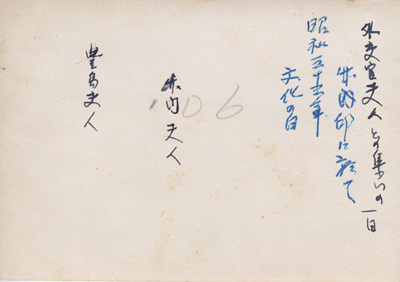 外交官夫人との集いの一日
竹内邸に於て
昭和五十三年
文化の日
竹内夫人
106
豊島夫人